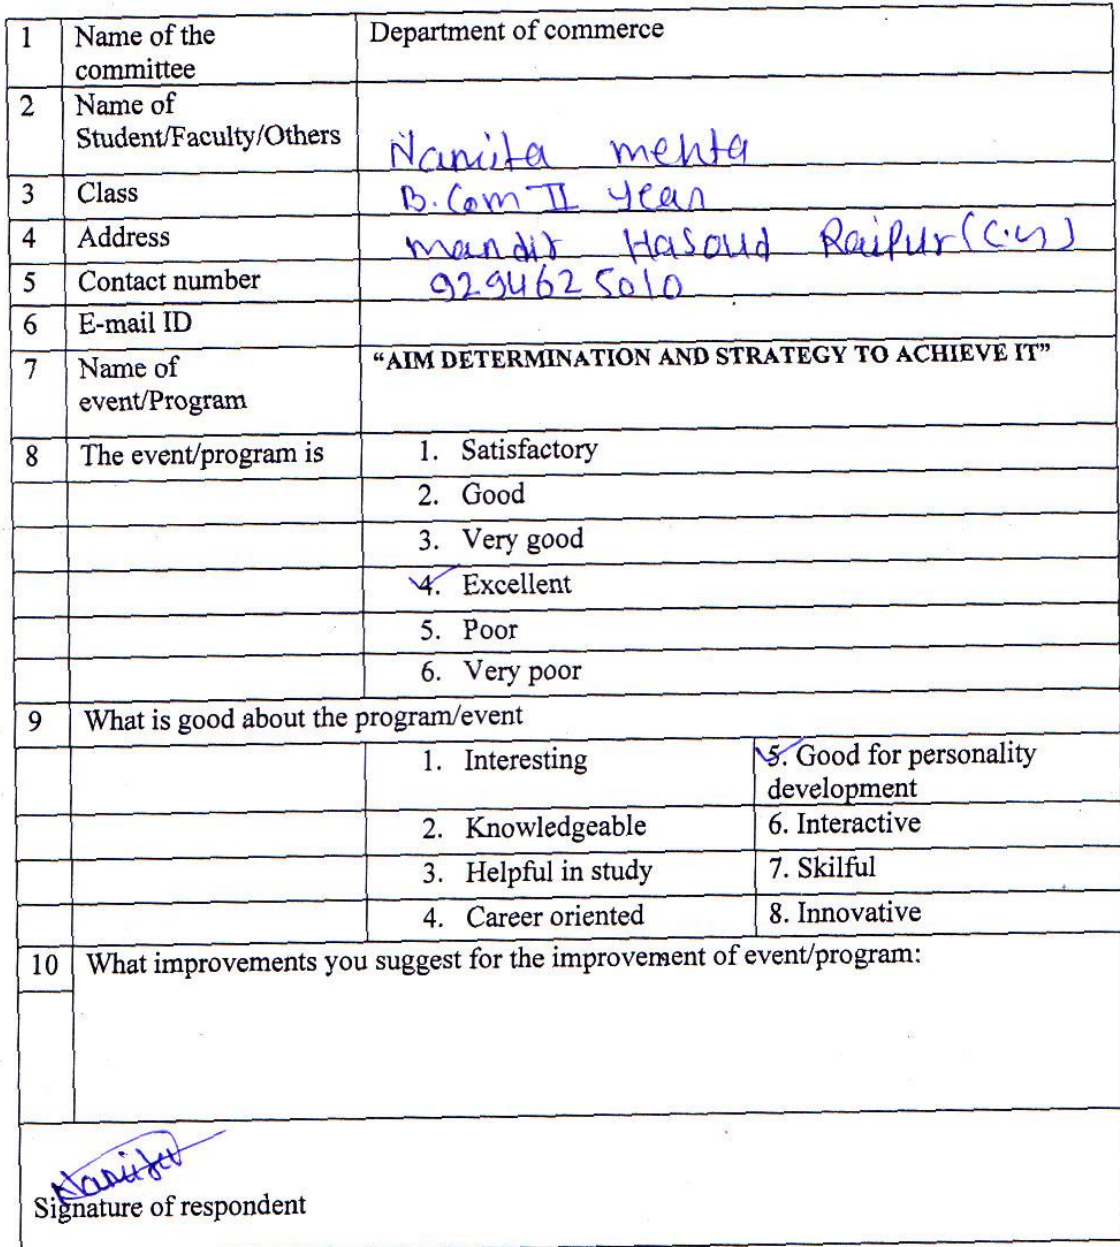 1 Name of the Department of commerce
committee
2 Name of
Student/Faculty/Others
Namita mehta
3 Class B.Com II year
4 Address mandir Hasoud Raipur (C.G)
5 Contact number 9294625010
6 E-mail ID
7 Name of "AIM DETERMINATION AND STRATEGY TO ACHIEVE IT"
event/Program
8 The event/program is 1. Satisfactory
2. Good
3. Very good
4. Excellent
5. Poor
6. Very poor
9 What is good about the program/event
1. Interesting 5. Good for personality
development
2. Knowledgeable 6. Interactive
3. Helpful in study 7. Skilful
4. Career oriented 8. Innovative
10 What improvements you suggest for the improvement of event/program:
Namita
Signature of respondent